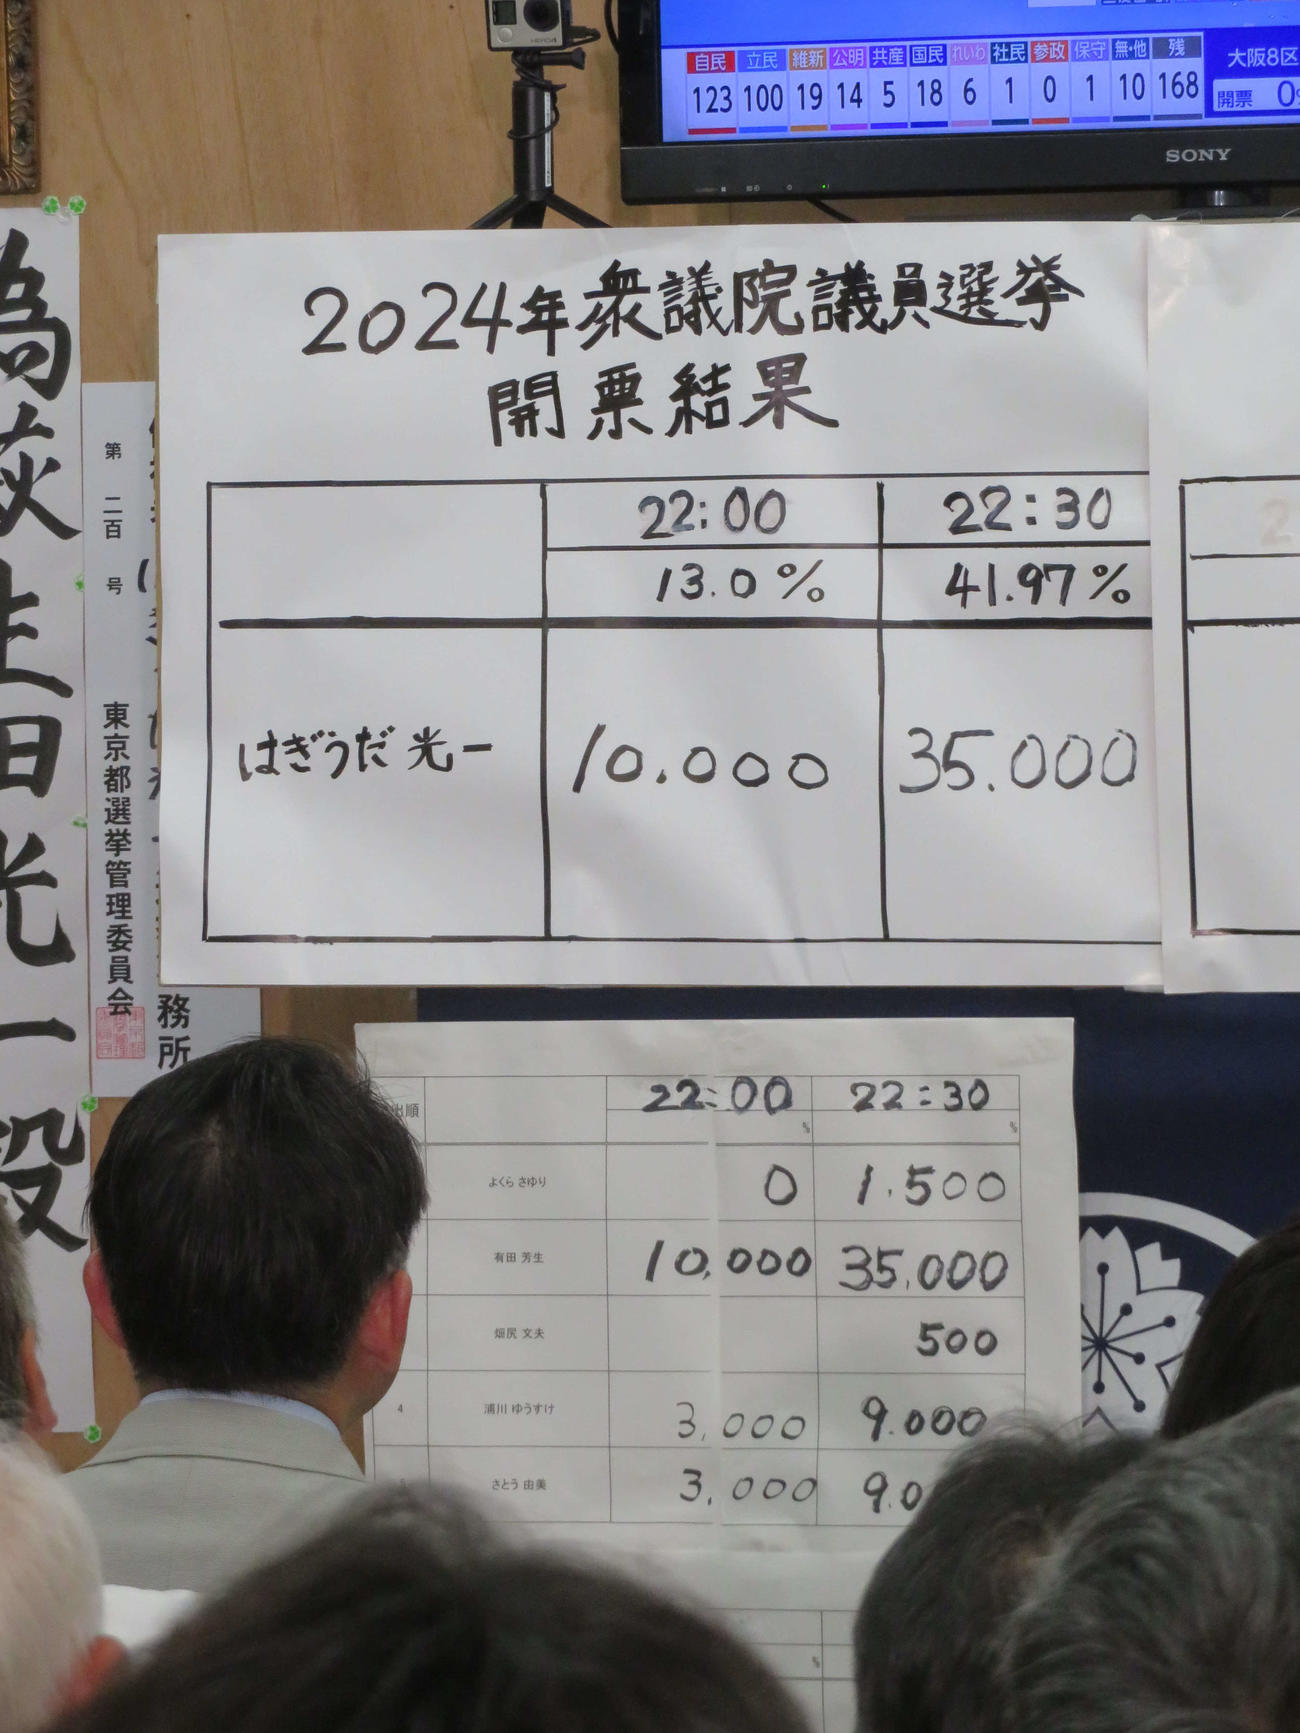 HERO4
自民 立民 維新 公明 共産 国民 れいわ 社民 参政 保守 無・他 残
123 100 19 14 5 18 6 1 0 1 10 168
大阪8区
開票 0
SONY
2024年衆議院議員選挙
開票結果
22:00 22:30
13.0% 41.97%
はぎうだ光一 10.000 35.000
為萩生田光一殿
第二百号
東京都選挙管理委員会
務所
出順 22:00 22:30
% %
よくら さゆり 0 1.500
有田 芳生 10,000 35,000
畑尻 文夫 500
4 浦川 ゆうすけ 3,000 9.000
5 さとう 由美 3,000 9.0
%